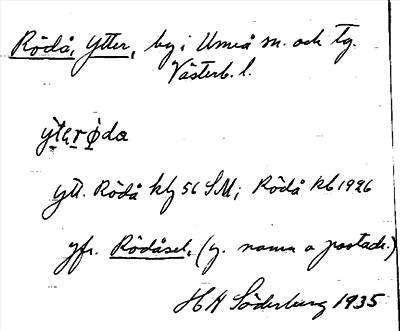 Rödå, Ytter, by i Umeå sn. och tg.
Västerb. l.
yterøda
ytt. Rödå kbg 56 SM; Rödå kb 1926
jfr. Rödåsel, (g. namn o postadr.)
H A Söderberg 1935